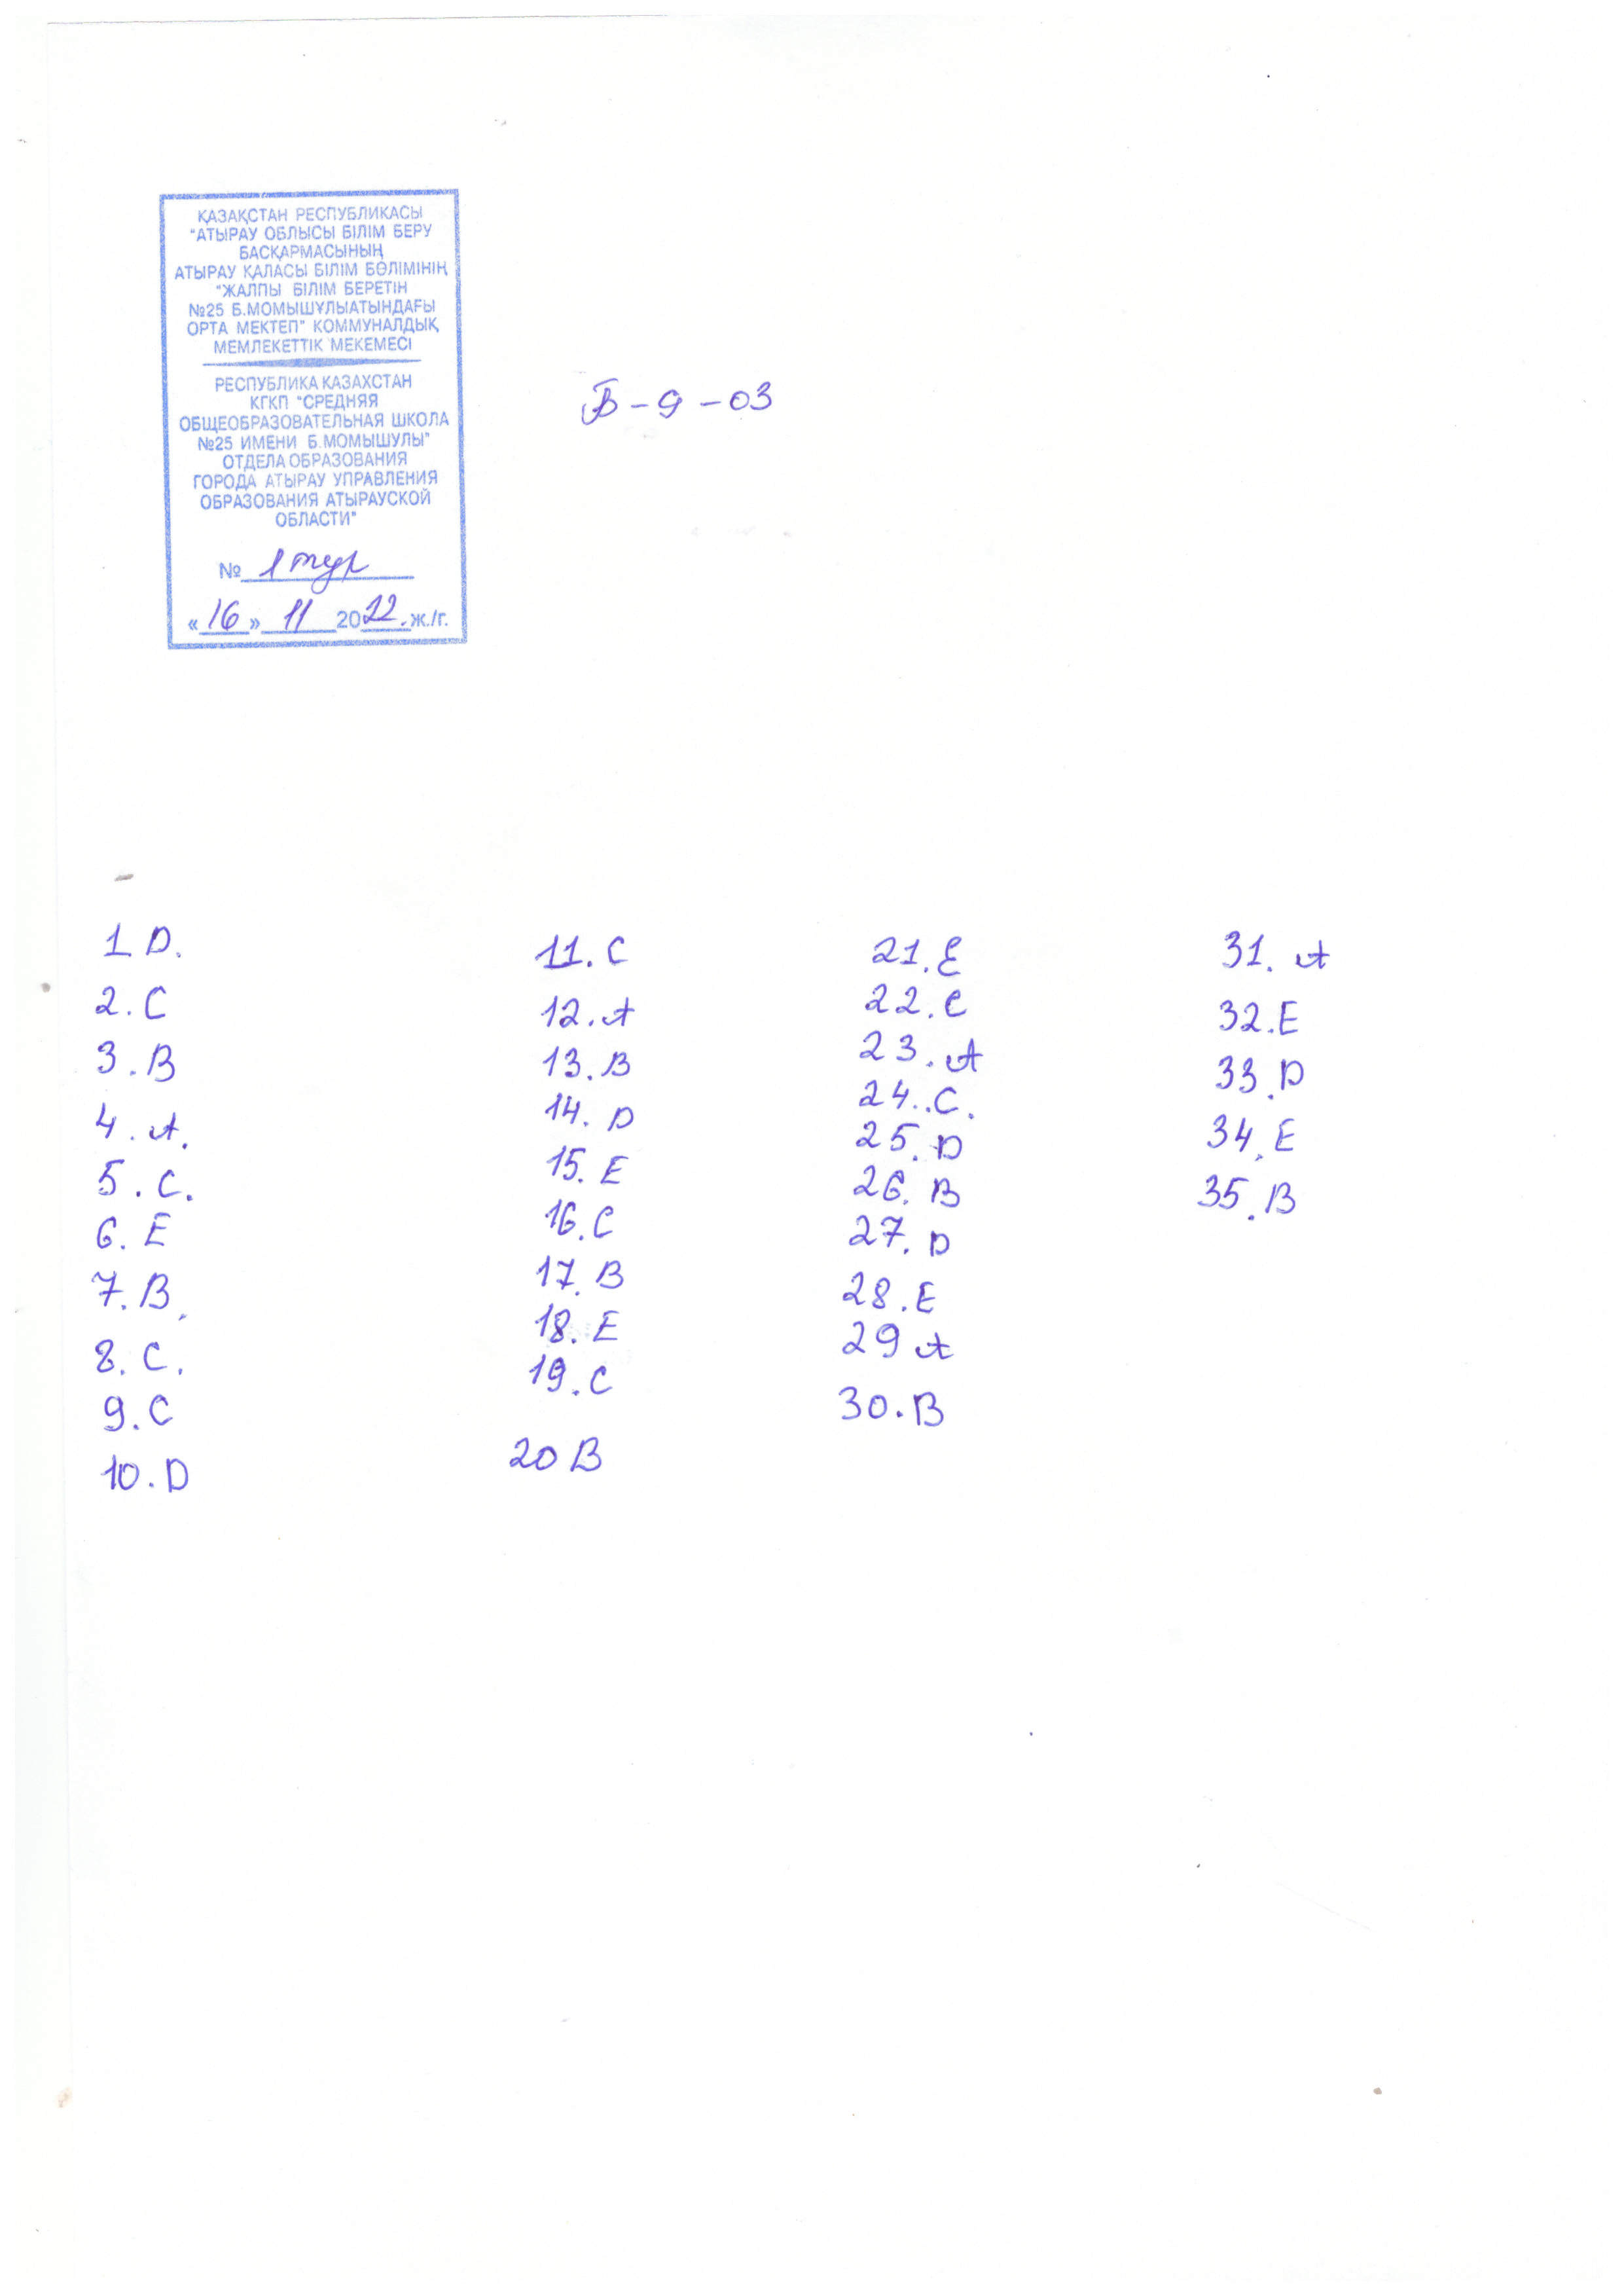 ҚАЗАҚСТАН РЕСПУБЛИКАСЫ
"АТЫРАУ ОБЛЫСЫ БІЛІМ БЕРУ
БАСҚАРМАСЫНЫҢ
АТЫРАУ ҚАЛАСЫ БІЛІМ БӨЛІМІНІҢ
"ЖАЛПЫ БІЛІМ БЕРЕТІН
№25 Б.МОМЫШҰЛЫАТЫНДАҒЫ
ОРТА МЕКТЕП" КОММУНАЛДЫҚ
МЕМЛЕКЕТТІК МЕКЕМЕСІ
РЕСПУБЛИКА КАЗАХСТАН
КГКП "СРЕДНЯЯ
ОБЩЕОБРАЗОВАТЕЛЬНАЯ ШКОЛА
№25 ИМЕНИ Б.МОМЫШУЛЫ"
ОТДЕЛА ОБРАЗОВАНИЯ
ГОРОДА АТЫРАУ УПРАВЛЕНИЯ
ОБРАЗОВАНИЯ АТЫРАУСКОЙ
ОБЛАСТИ"
№ 1 тур
«16» 11 2022.ж./г.
Б-9-03
1 D.
2. C
3. B
4. A.
5. C.
6. E
7. B.
8. C.
9. C
10. D
11. C
12. A
13. B
14. D
15. E
16. C
17. B
18. E
19. C
20 B
21. E
22. C
23. A
24.. C.
25. D
26. B
27. D
28. E
29 A
30. B
31. A
32. E
33. D
34. E
35. B